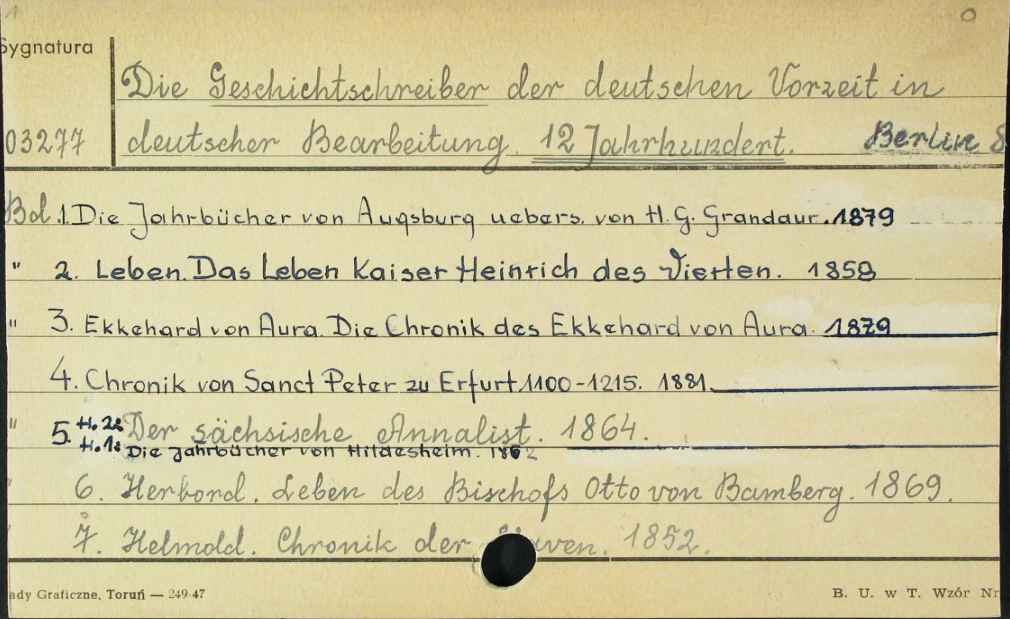 Sygnatura
Die Geschichtschreiber der deutschen Vorzeit in
03277 deutscher Bearbeitung. 12 Jahrhundert. Berlin
Bd. 1. Die Jahrbücher von Augsburg uebers. von H. G. Grandaur. 1879
" 2. Leben. Das Leben Kaiser Heinrich des Vierten. 1858
" 3. Ekkehard von Aura. Die Chronik des Ekkehard von Aura. 1879
4. Chronik von Sanct Peter zu Erfurt 1100-1215. 1881.
" 5. H. 2: Der sächsische Annalist. 1864.
H. 1: Die Jahrbücher von Hildesheim. 1862
" 6. Herbord. Leben des Bischofs Otto von Bamberg. 1869.
" 7. Helmold. Chronik der 1852.
ady Graficzne, Toruń — 249-47 B. U. w T. Wzór Nr